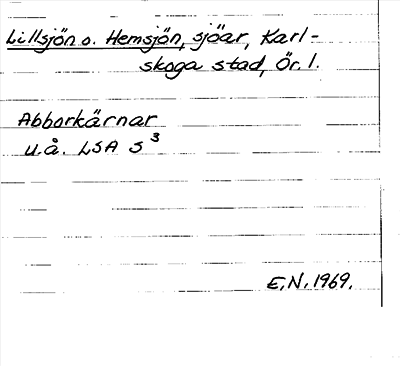 Lillsjön o. Hemsjön, sjöar, Karl-
skoga stad, Ör. l.
Abborkärnar
u.å. LSA S³
E.N. 1969.